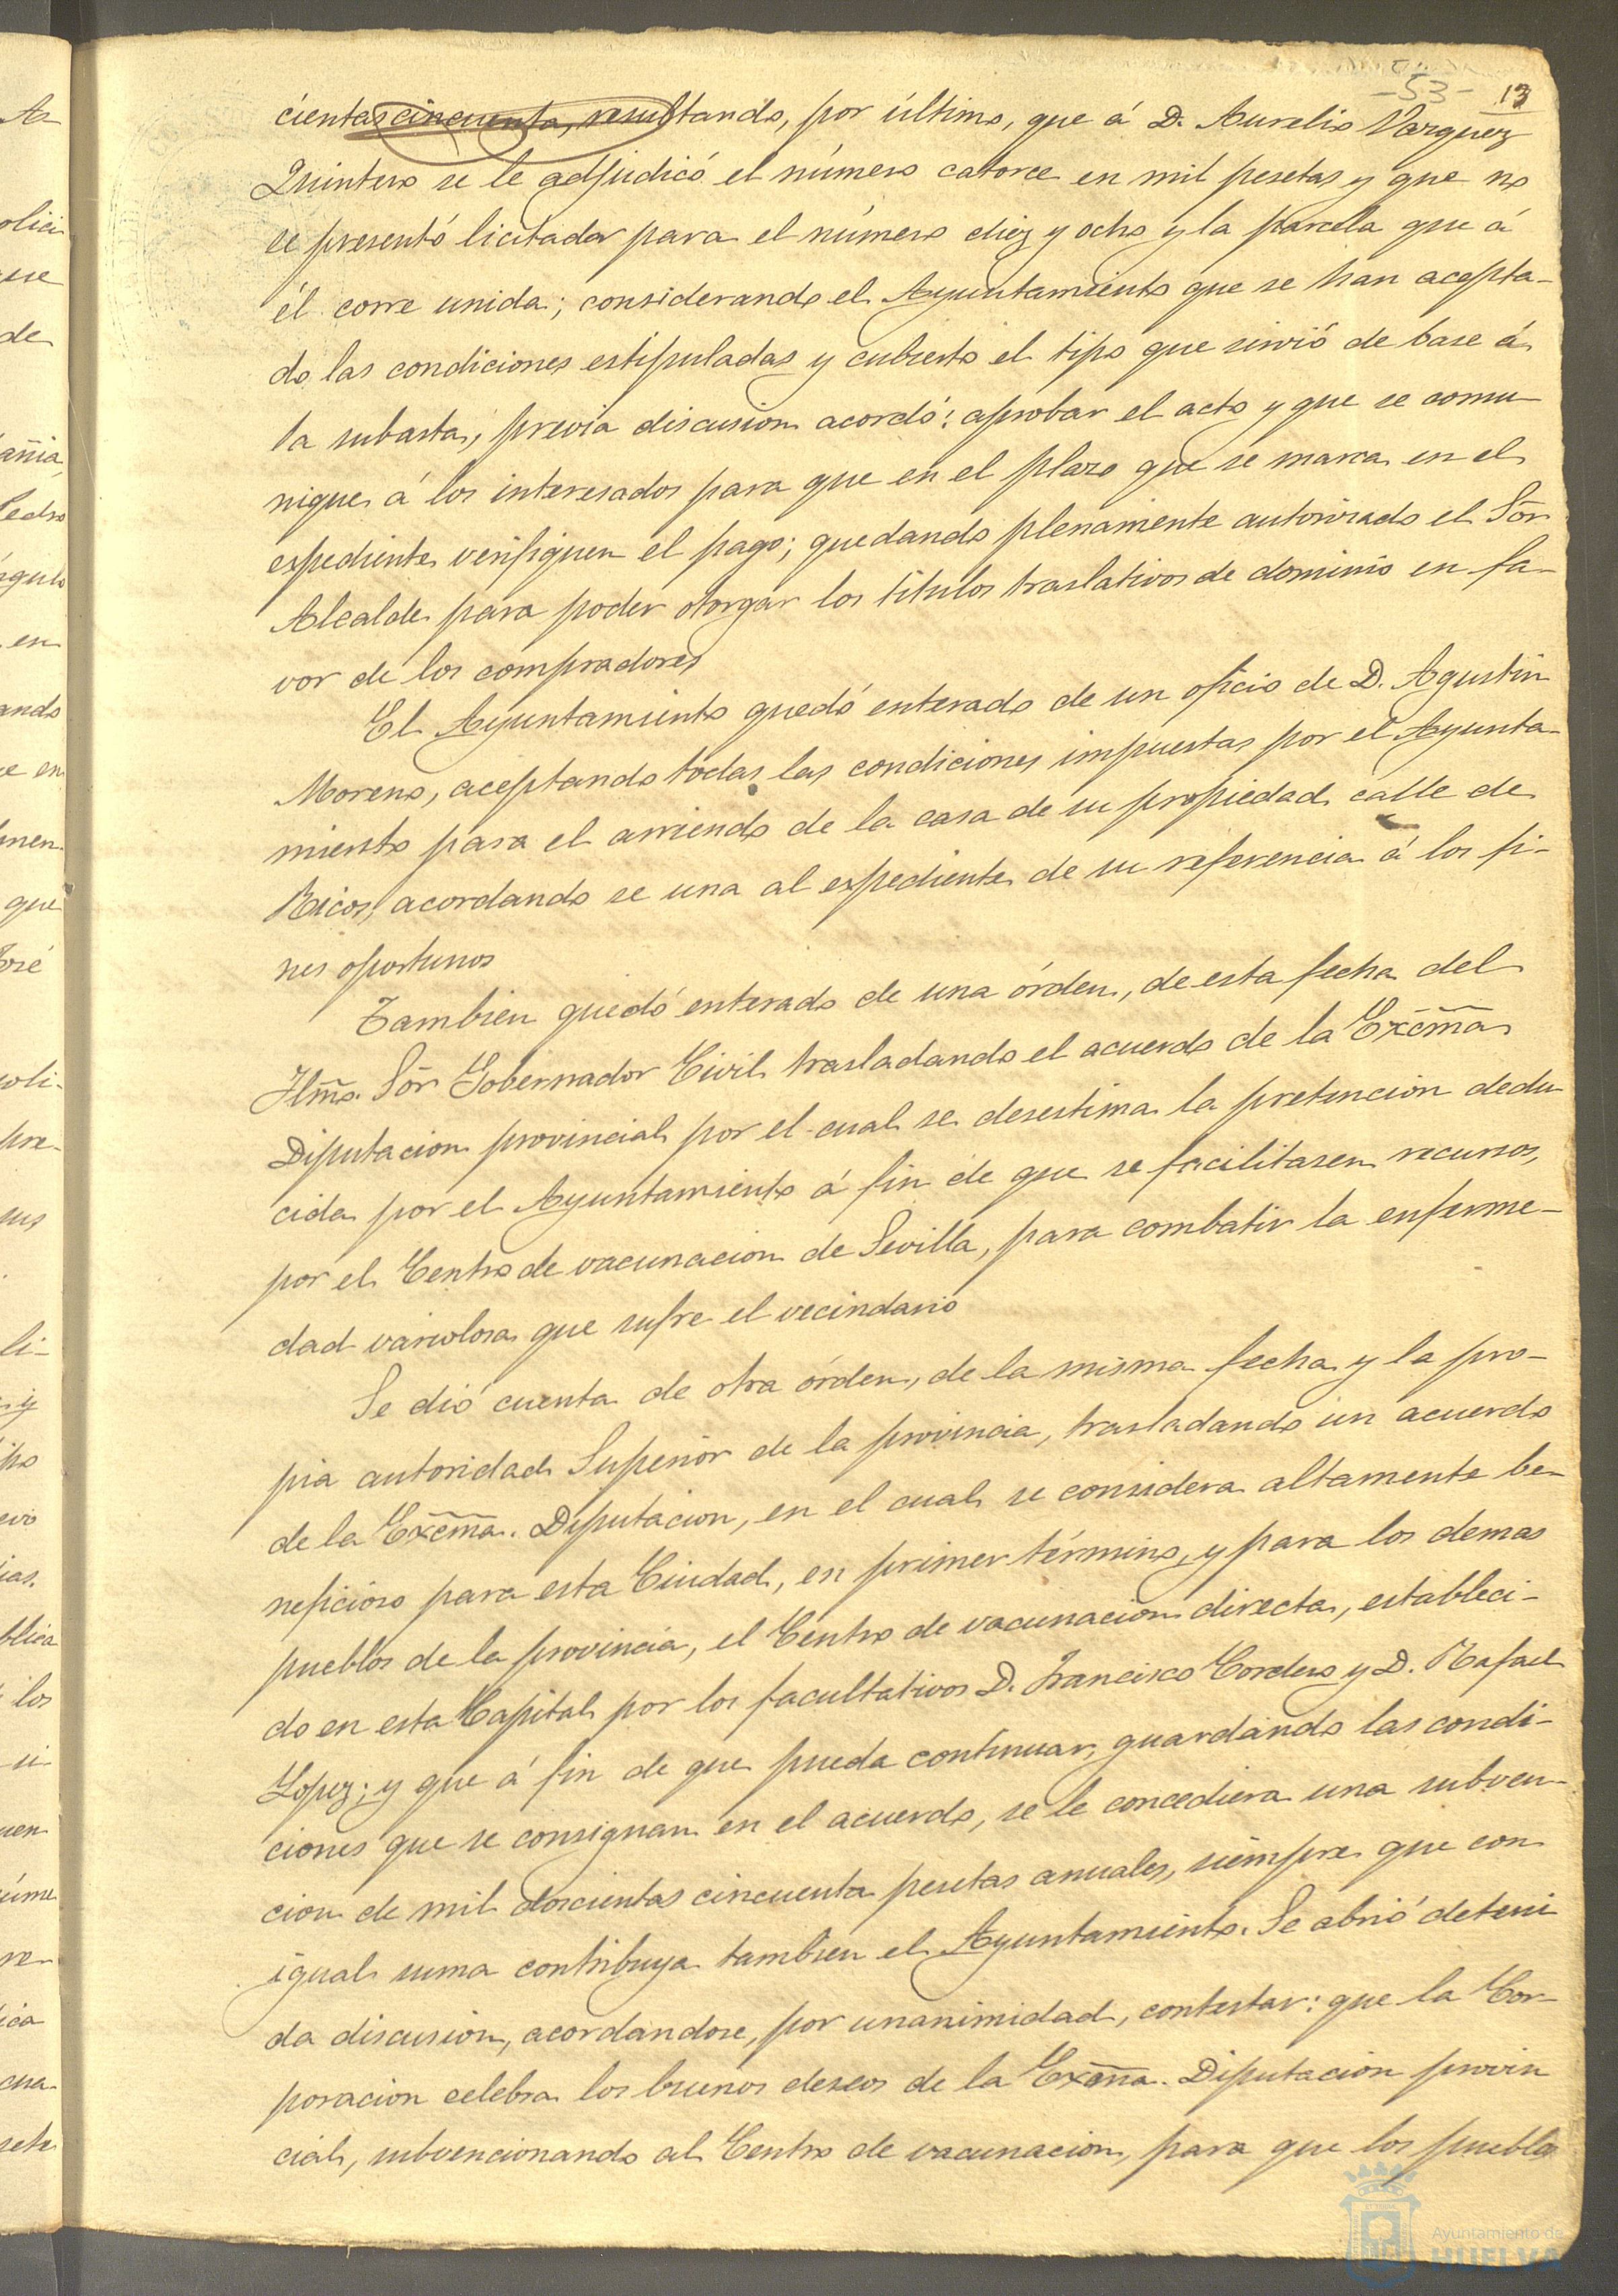 -53- 13
cientas cincuenta, resultando, por último, que á D. Aurelio Vazquez
Quintero se le adjudicó el número catorce en mil pesetas y que no
se presentó licitador para el número diez y ocho y la parcela que á
él corre unida; considerando el Ayuntamiento que se han acepta-
do las condiciones estipuladas y cubierto el tipo que sirvió de base á
la subasta, previa discusion acordó: aprobar el acto y que se comu-
nique á los interesados para que en el plazo que se marca en el
espediente verifiquen el pago; quedando plenamente autorizado el Sõr
Alcalde para poder otorgar los titulos traslativos de dominio en fa-
vor de los compradores
El Ayuntamiento quedó enterado de un oficio de D. Agustin
Moreno, aceptando todas las condiciones impuestas por el Ayunta-
miento para el arriendo de la casa de su propiedad calle de
Ricos, acordando se una al espediente de su referencia á los fi-
nes oportunos
Tambien quedó enterado de una órden, de esta fecha del
Ilmõ. Sõr Gobernador Civil trasladando el acuerdo de la Excma
Diputacion provincial por el cual se desestima la pretencion dedu
cida por el Ayuntamiento á fin de que se facilitasen recursos,
por el Centro de vacunacion de Sevilla, para combatir la enferme-
dad variolosa que sufre el vecindario
Se dió cuenta de otra órden, de la misma fecha y la pro-
pia autoridad Superior de la provincia, trasladando un acuerdo
de la Excma. Diputacion, en el cual se considera altamente be-
neficioso para esta Ciudad, en primer término, y para los demas
pueblos de la provincia, el Centro de vacunacion directa, estableci-
do en esta Capital por los facultativos D. Francisco Cordero y D. Rafael
Lopez; y que á fin de que pueda continuar, guardando las condi-
ciones que se consignan en el acuerdo, se le concediera una subven-
cion de mil doscientas cincuenta pesetas anuales, siempre que con
igual suma contribuya tambien el Ayuntamiento. Se abrió deteni
da discusion, acordandose, por unanimidad, contestar: que la Cor-
poracion celebra los buenos deseos de la Excma. Diputacion provin
cial, subvencionando al Centro de vacunacion, para que los pueblos
Ayuntamiento de
HUELVA